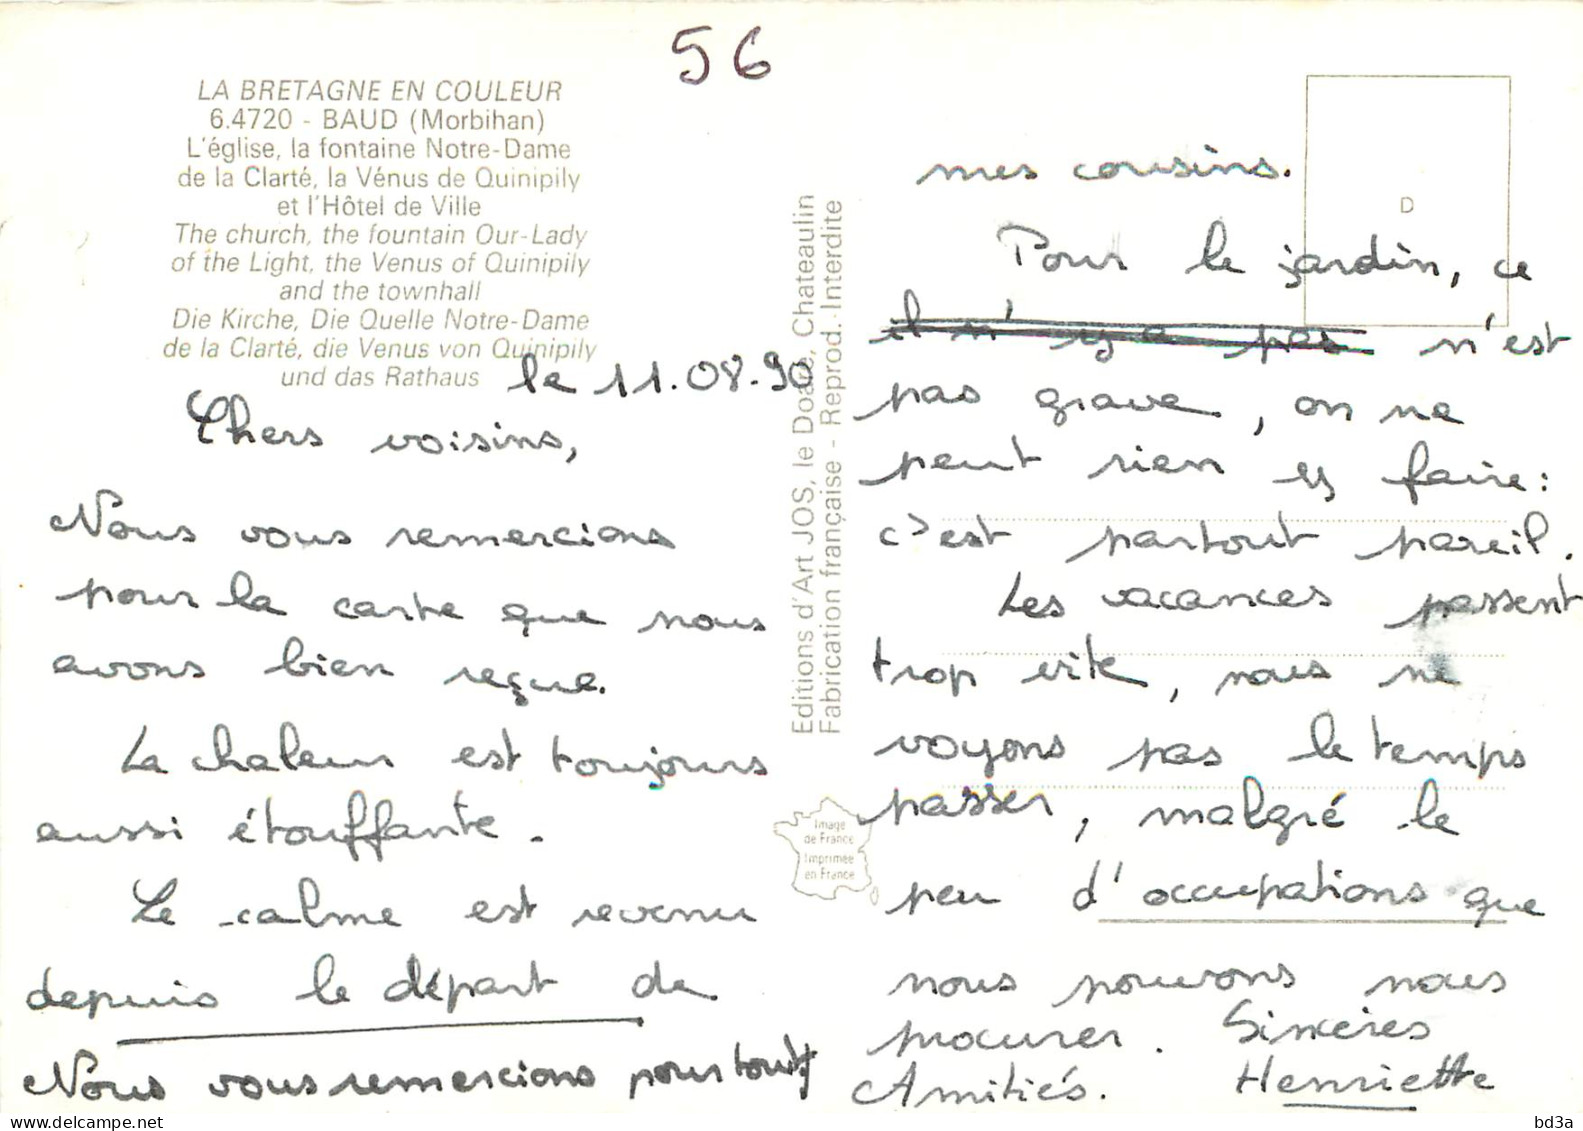 56
LA BRETAGNE EN COULEUR
6.4720 - BAUD (Morbihan)
L'église, la fontaine Notre-Dame
de la Clarté, la Vénus de Quinipily
et l'Hôtel de Ville
The church, the fountain Our-Lady
of the Light, the Venus of Quinipily
and the townhall
Die Kirche, Die Quelle Notre-Dame
de la Clarté, die Venus von Quinipily
und das Rathaus
le 11.08.90
Chers voisins,
Nous vous remercions
pour la carte que nous
avons bien reçue.
La chaleur est toujours
aussi étouffante.
Le calme est revenu
depuis le départ de
Nous vous remercions pour tout
Editions d'Art JOS, le Doaré, Chateaulin
Fabrication française - Reprod. Interdite
Image
de France
Imprimée
en France
D
mes cousins.
Pour le jardin, ce
il n'y a pas n'est
pas grave, on ne
peut rien y faire :
c'est partout pareil.
Les vacances passent
trop vite, nous ne
voyons pas le temps
passer, malgré le
peu d'occupations que
nous pouvons nous
procurer. Sincères
Amitiés. Henriette
bd3a